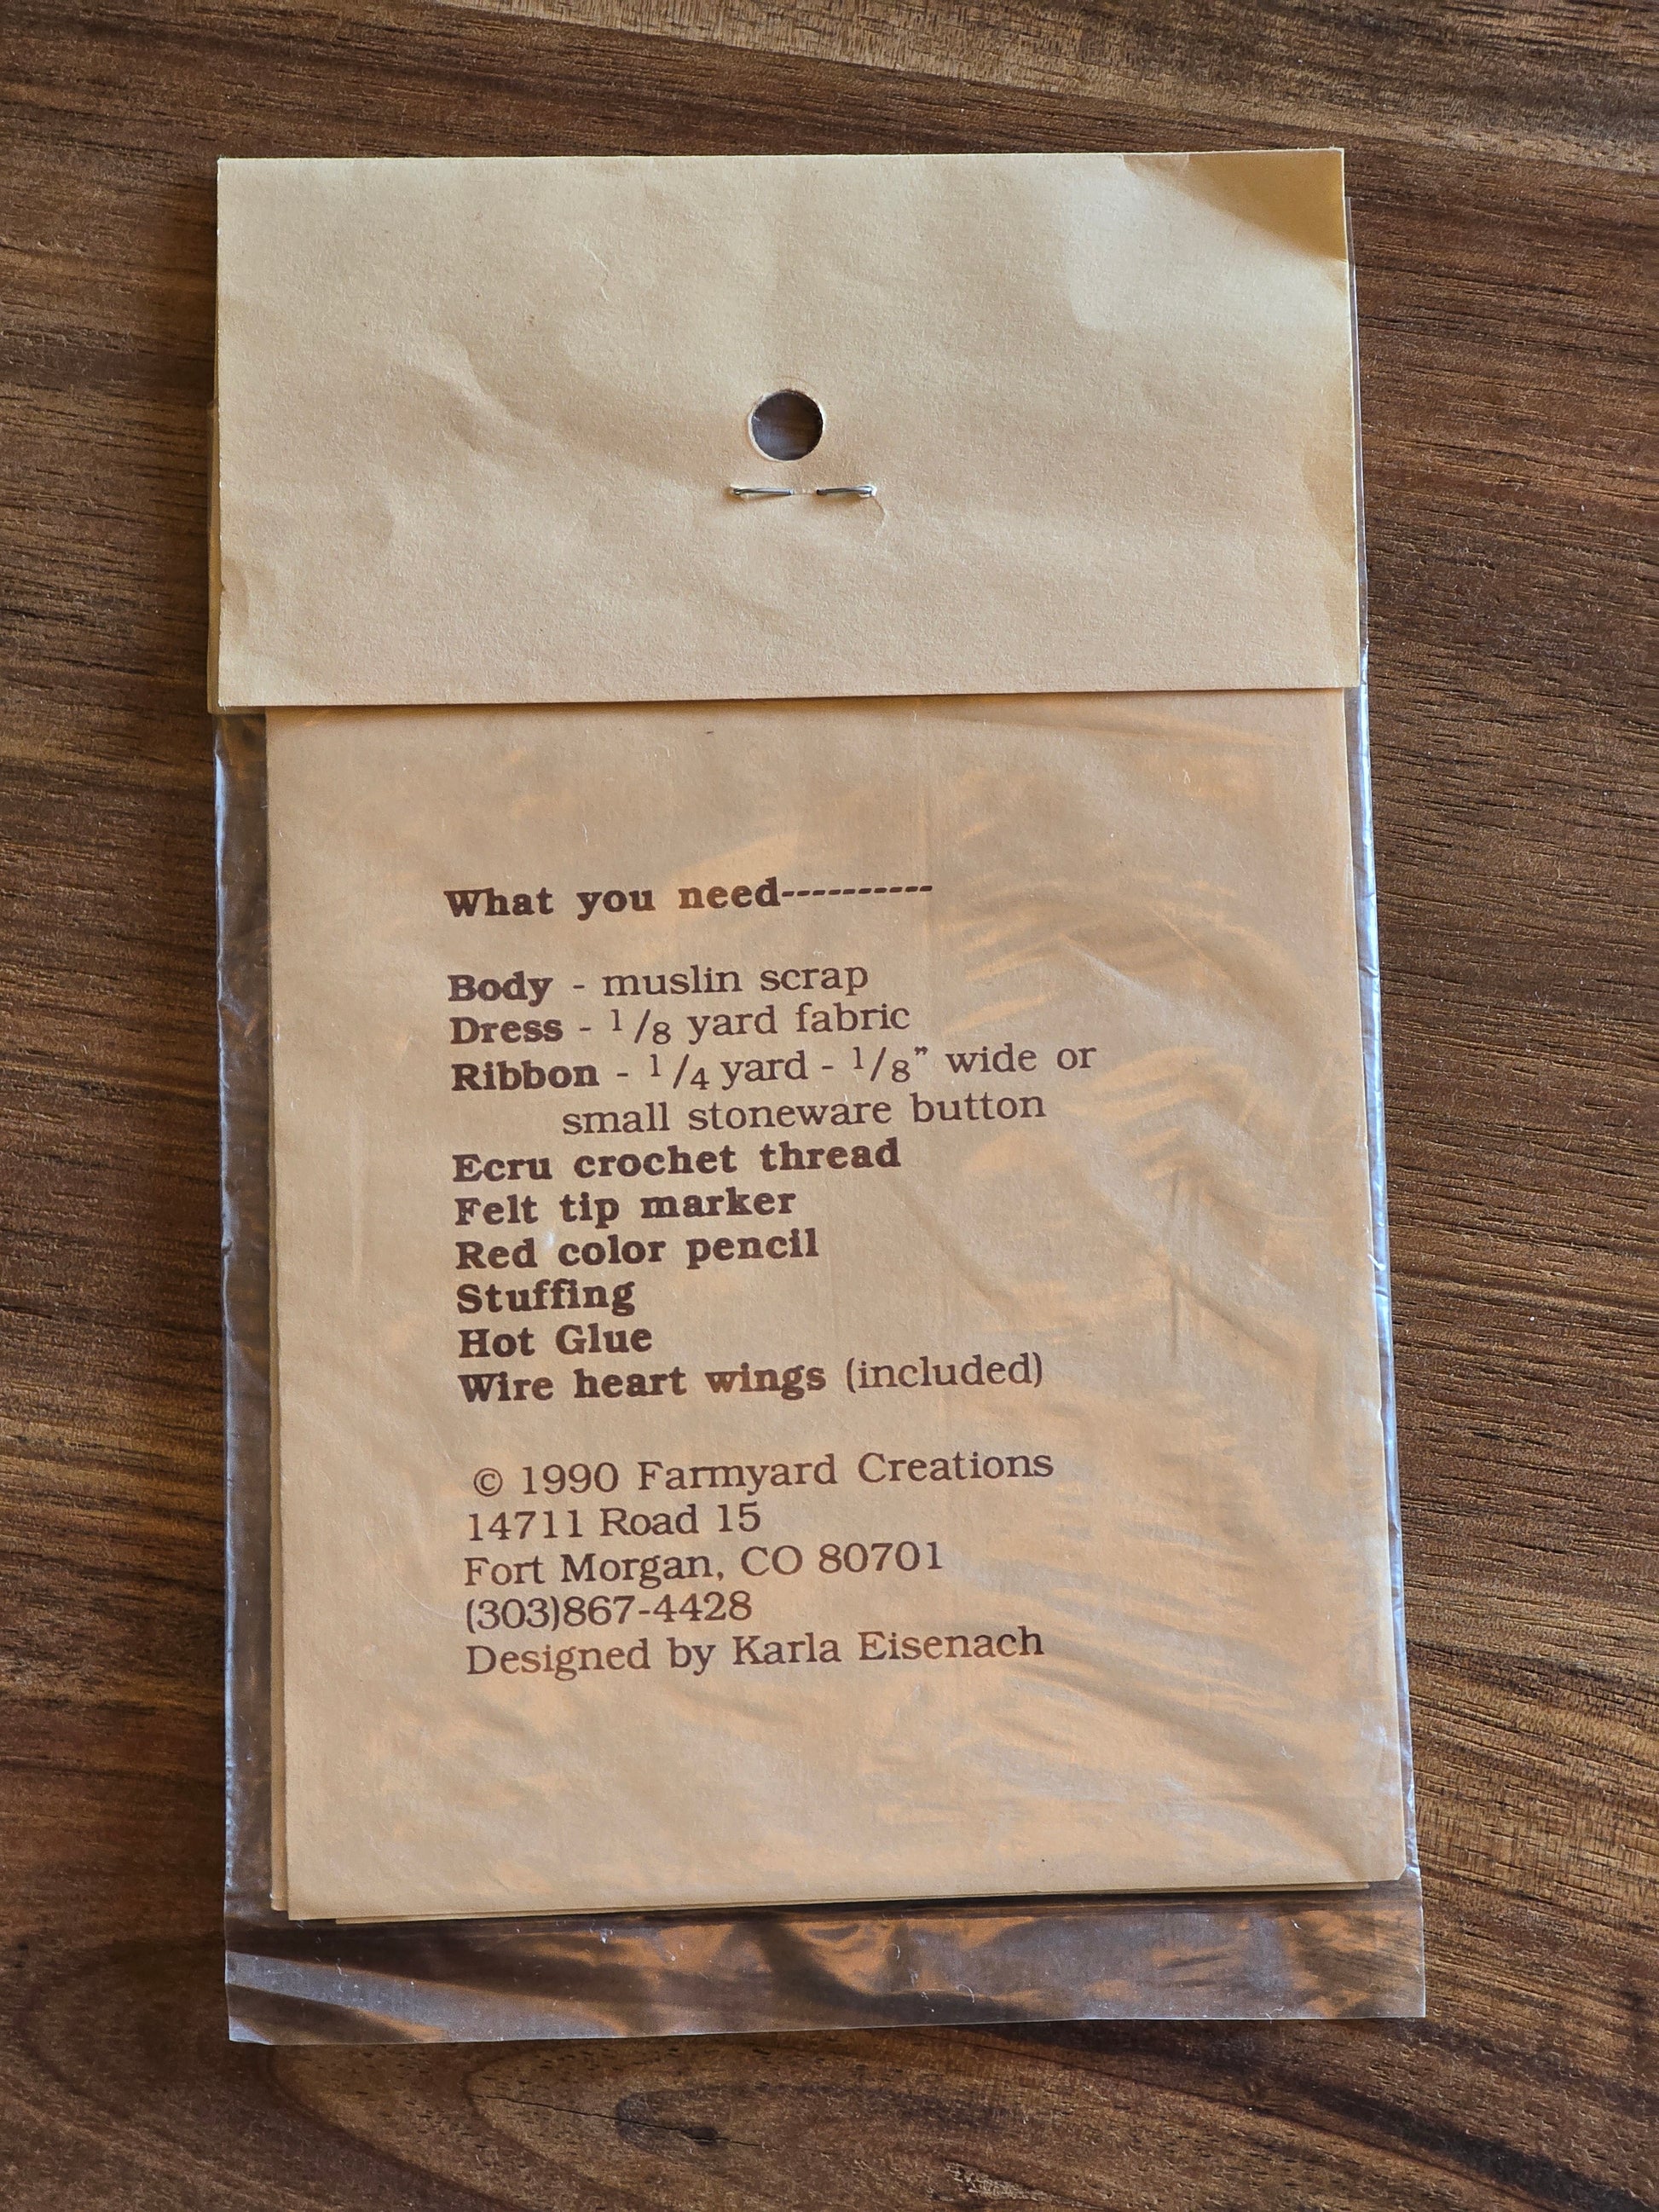 What you need----------
Body - muslin scrap
Dress - 1/8 yard fabric
Ribbon - 1/4 yard - 1/8” wide or
small stoneware button
Ecru crochet thread
Felt tip marker
Red color pencil
Stuffing
Hot Glue
Wire heart wings (included)
© 1990 Farmyard Creations
14711 Road 15
Fort Morgan, CO 80701
(303)867-4428
Designed by Karla Eisenach